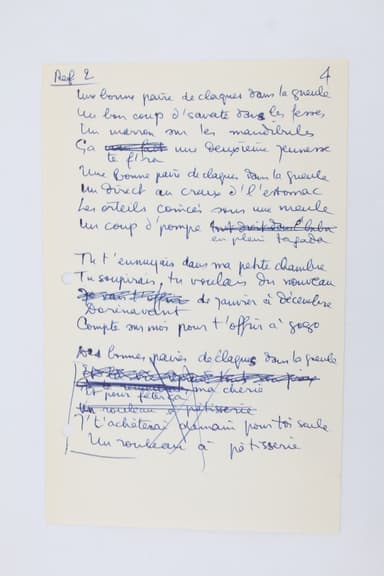 Ref 2
4
Une bonne paire de claques dans la gueule
Un bon coup d'savate dans les fesses
Un marron sur les mandibules
Ça une deuxième jeunesse
te f'ra
Une bonne paire de claques dans la gueule
Un direct au creux d'l'estomac
Les orteils coincés sous une meule
Un coup d'pompe tout droit dans l'baba
en plein tagada
Tu t'ennuyais dans ma petite chambre
Tu soupirais, tu voulais du nouveau
de janvier à décembre
Dorénavant
Compte sur moi pour t'offrir à gogo
bonnes paires de claques dans la gueule
ma chérie
Et pour
Un rouleau à pâtisserie
J't'achèterai demain pour toi seule
Un rouleau à pâtisserie